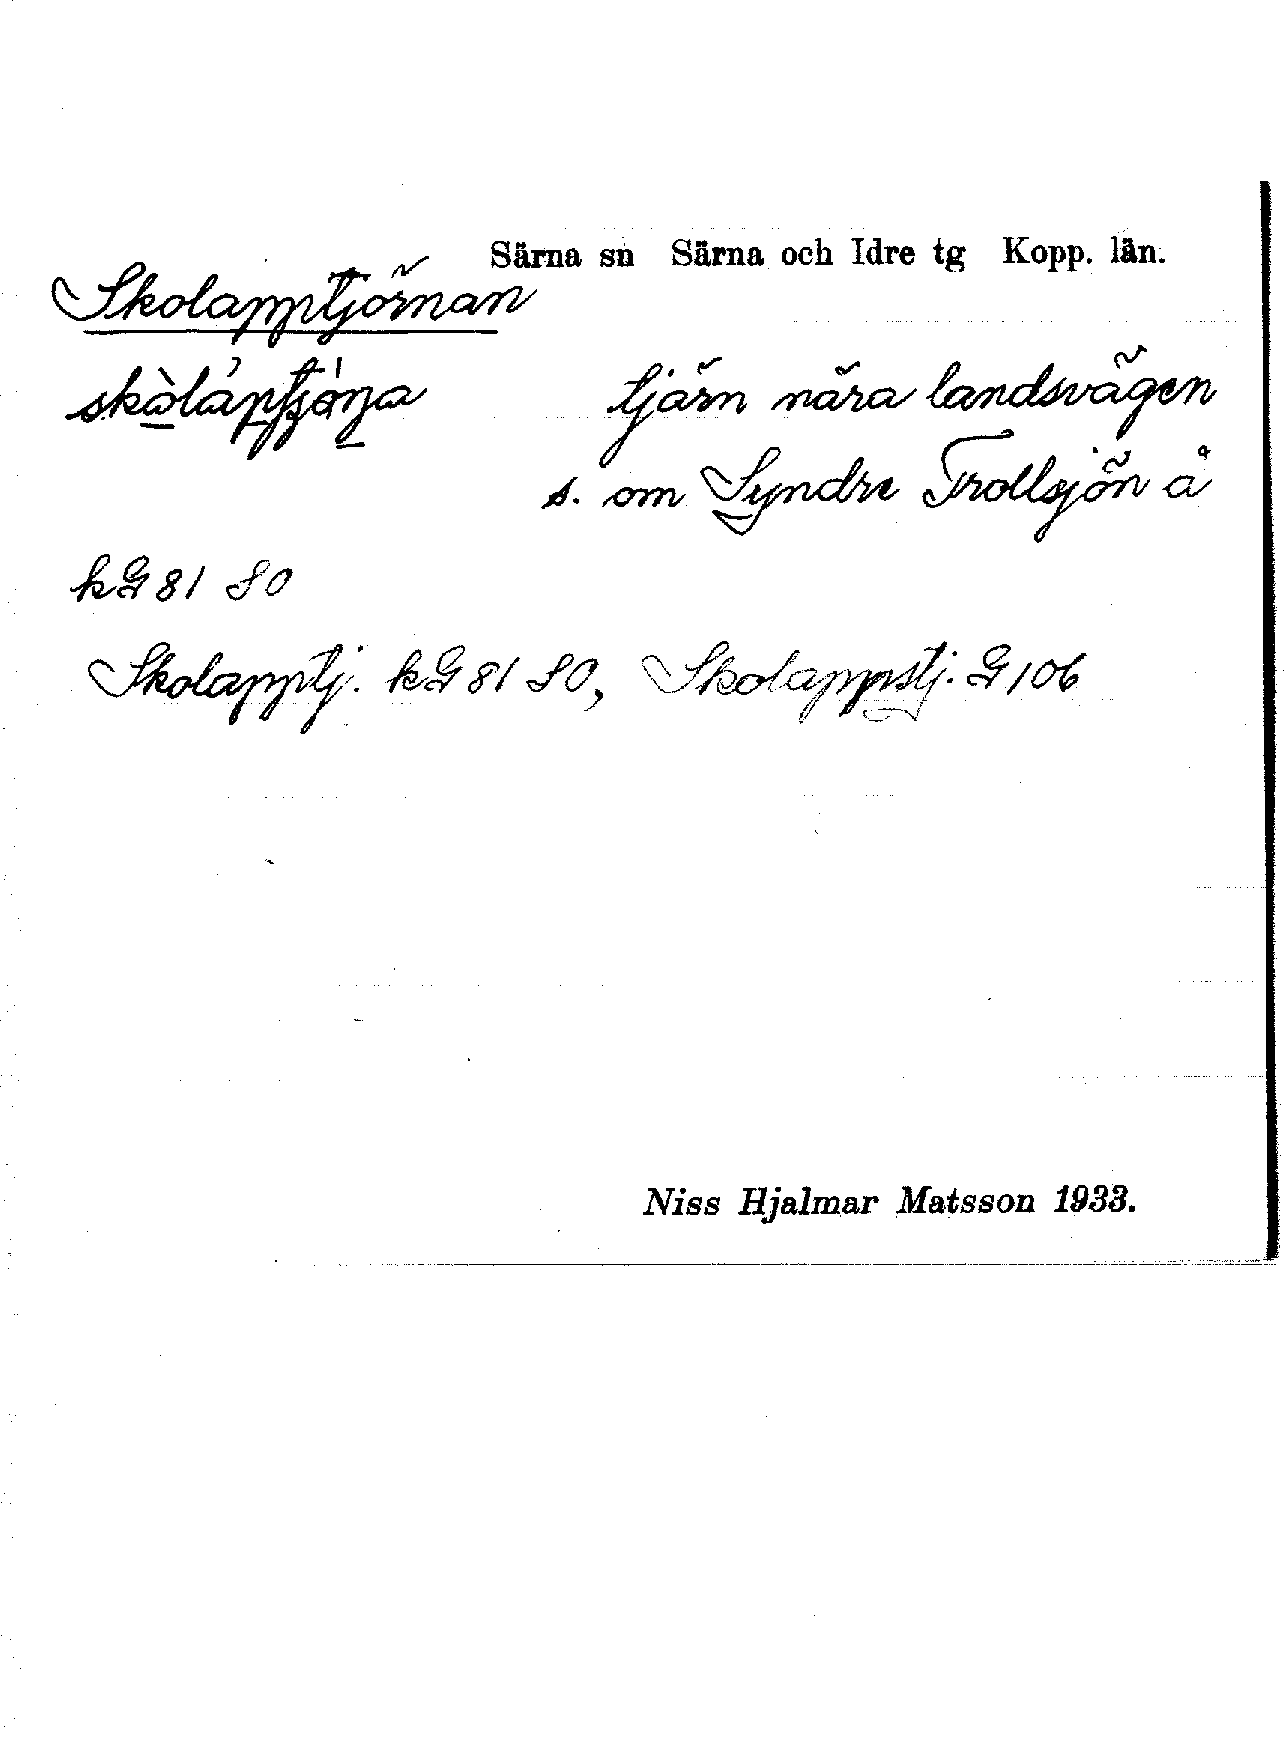 Särna sn Särna och Idre tg Kopp. län.
Skolapptjörnan
tjärn nära landsvägen
s. om Syndre Trollsjön å
kG 81 SO
Skolapptj. kG 81 SO, Skolappstj. G 106
Niss Hjalmar Matsson 1933.